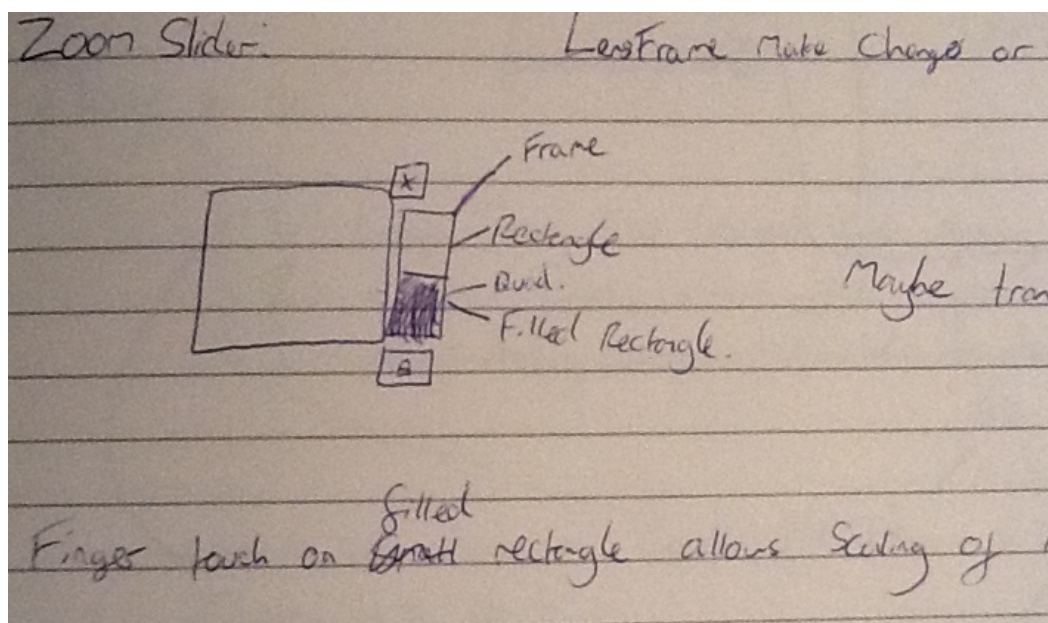 Zoom Slider:
LensFrame Make Change or
X
Frame
Rectangle
Quad.
Filled Rectangle.
Maybe tran
filled
Finger touch on rectangle allows Scaling of